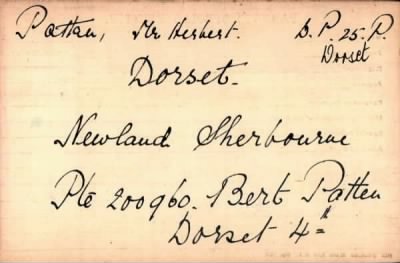 Pattan, Mr Herbert. D. P. 25. P.
Dorset
Dorset.
Newland Sherbourne
Pte 200960. Bert Patten
Dorset 4=th